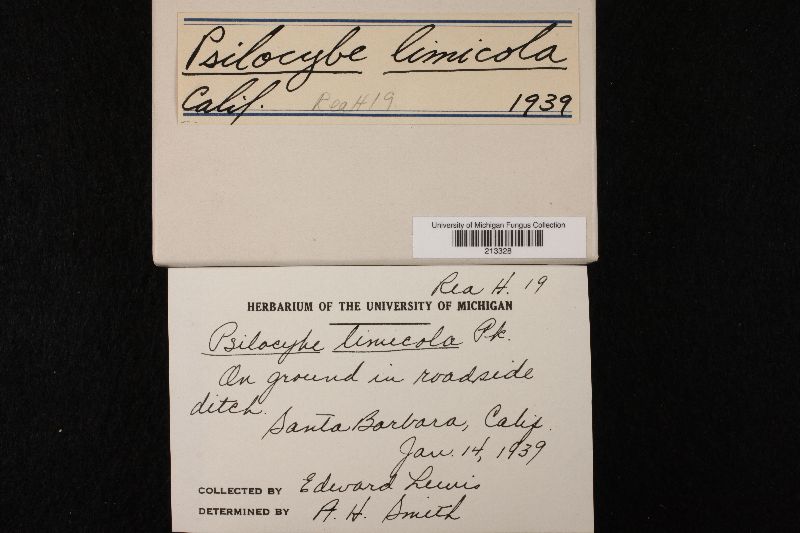 Psilocybe limicola
Calif. Rea H 19 1939
University of Michigan Fungus Collection
213328
Rea H. 19
HERBARIUM OF THE UNIVERSITY OF MICHIGAN
Psilocybe limicola Pk.
On ground in roadside
ditch.
Santa Barbara, Calif.
Jan. 14, 1939
COLLECTED BY Edward Lewis
DETERMINED BY A. H. Smith